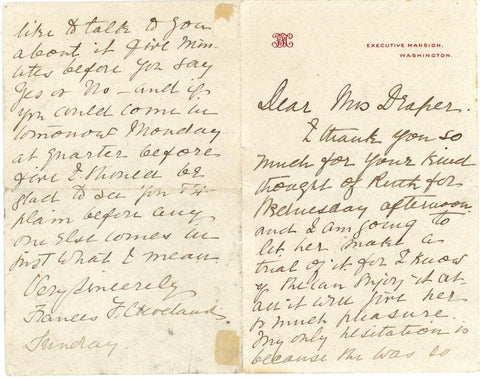 EXECUTIVE MANSION,
WASHINGTON.
Dear Mrs Draper.
I thank you so
much for your kind
thought of Ruth for
Wednesday afternoon
and I am going to
let her make a
trial of it. for I know
if she can enjoy it at
all it will give her
so much pleasure.
My only hesitation is
because she was so
like to talk to you
about it five min
utes before you say
Yes or No - and if
you could come in
tomorrow Monday
at quarter before
five I should be
glad to see you Ex
plain before any
one else comes in
just what I mean
Very Sincerely
Frances F. Cleveland
Sunday.